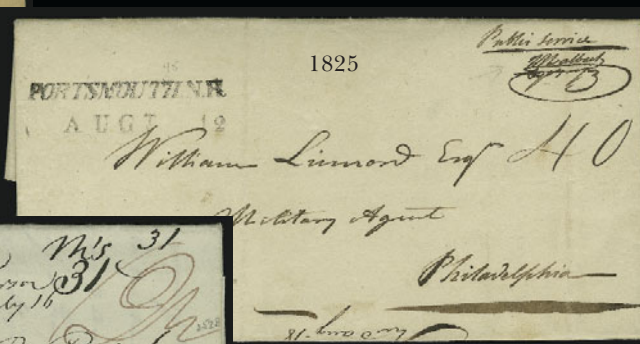 Public Service
1825
PORTSMOUTH N.H.
AUGT 12
William Linnard Esqr 40
Military Agent
Philadelphia
M's 31
31
by 16